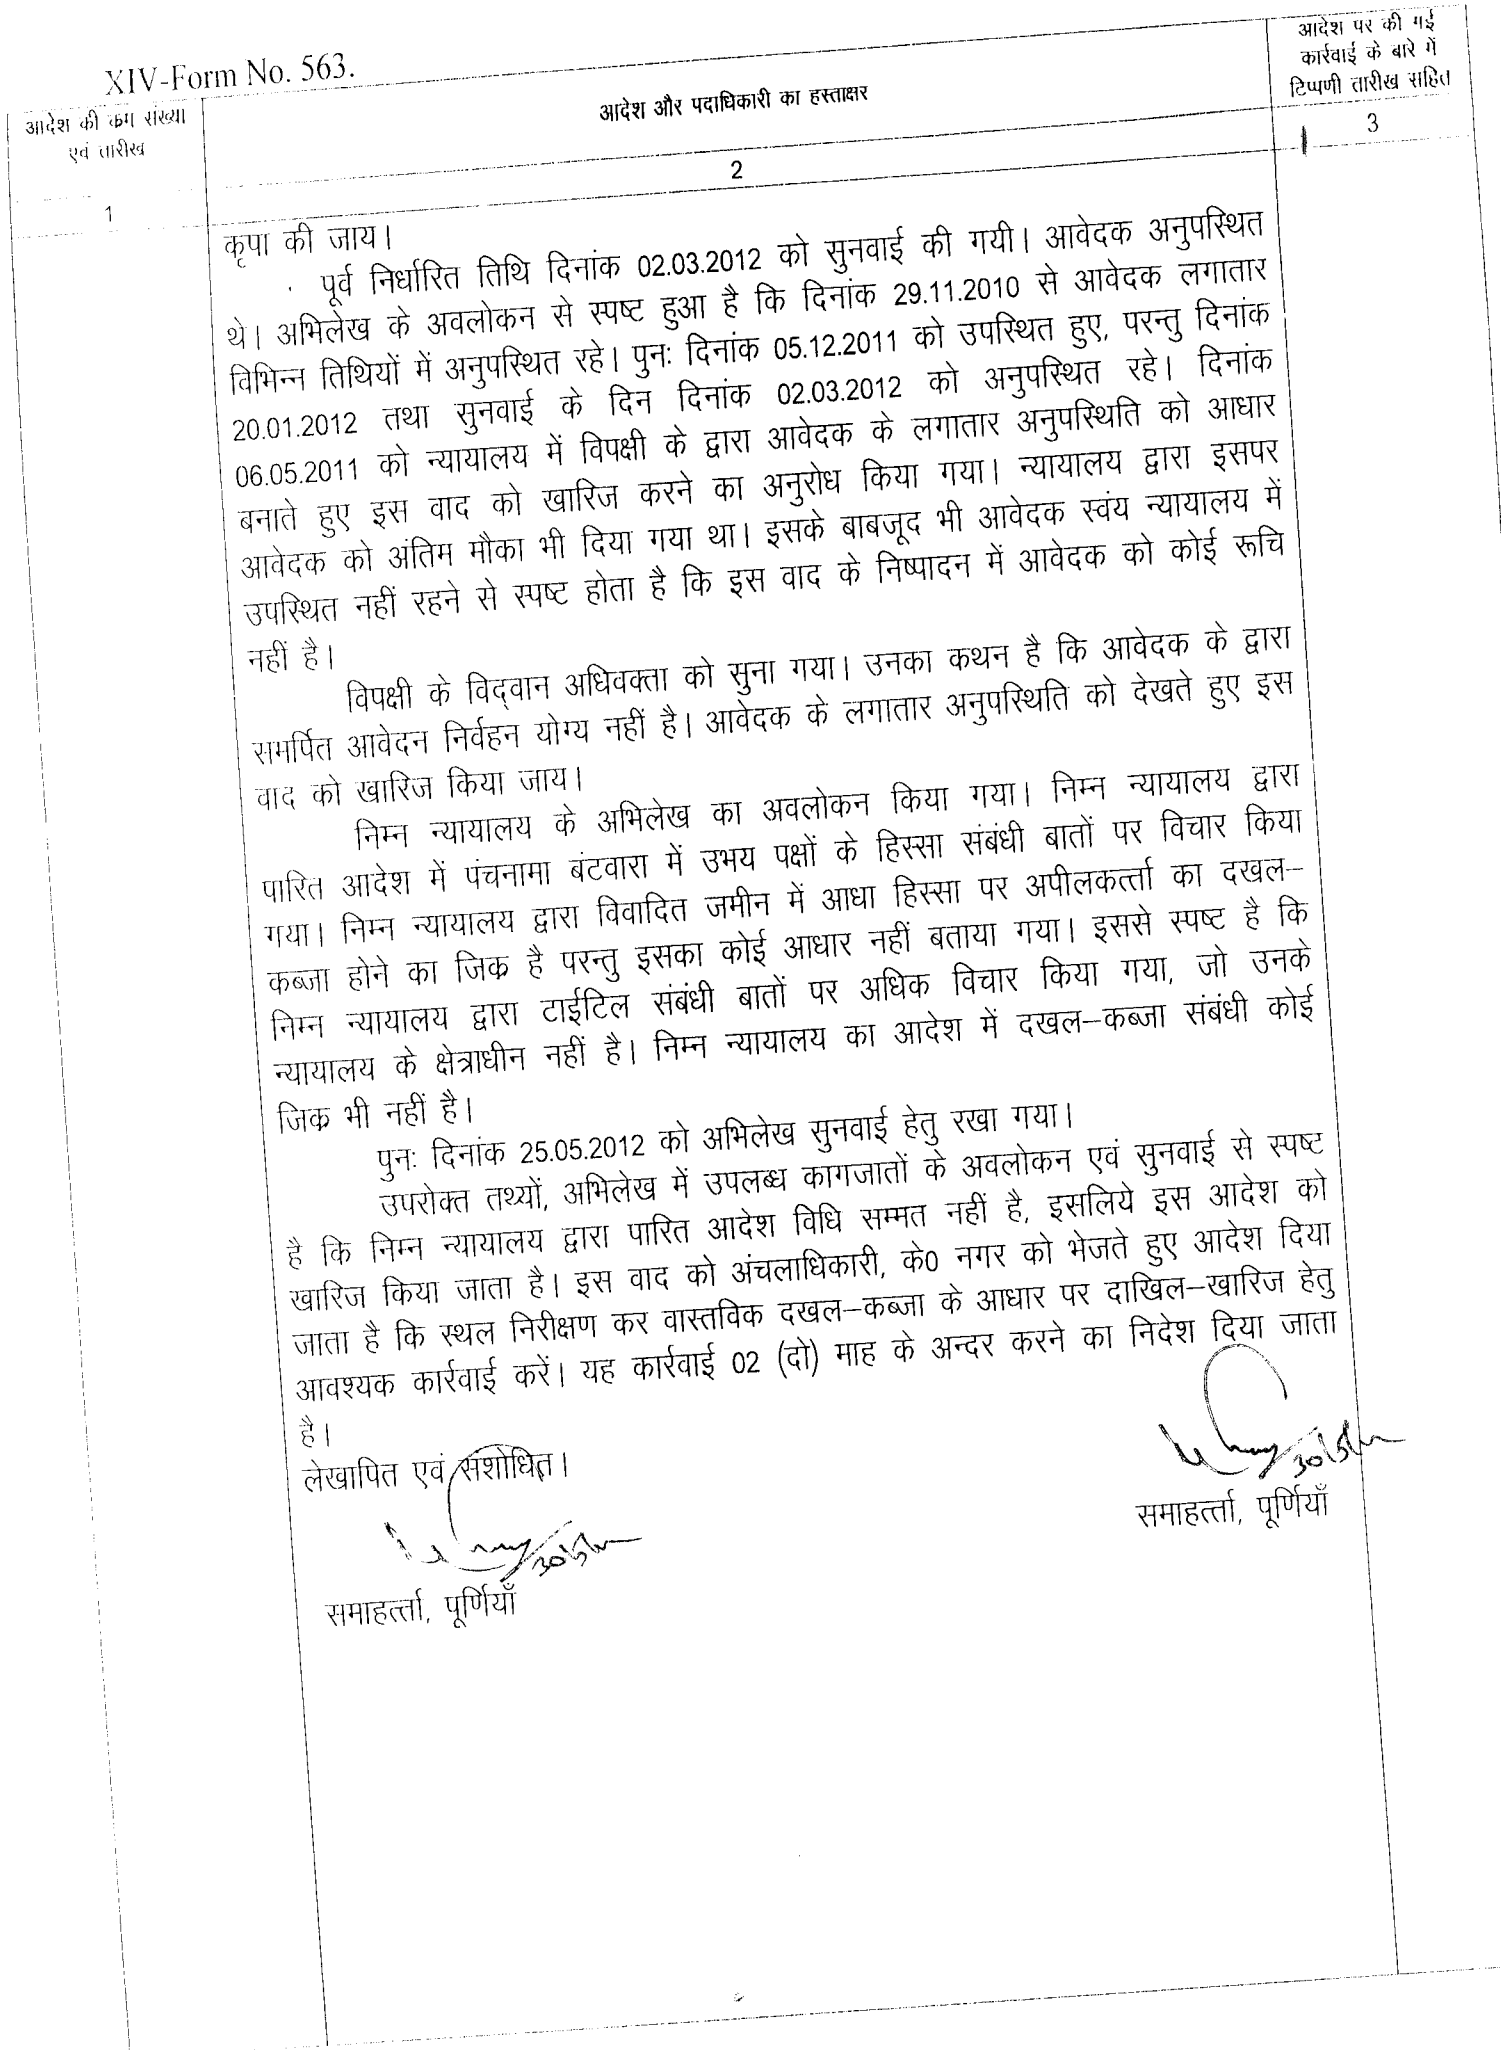 XIV-Form No. 563.
आदेश की क्रम संख्या
एवं तारीख
आदेश और पदाधिकारी का हस्ताक्षर
आदेश पर की गई
कार्रवाई के बारे में
टिप्पणी तारीख सहित
1
2
3
कृपा की जाय।
पूर्व निर्धारित तिथि दिनांक 02.03.2012 को सुनवाई की गयी। आवेदक अनुपस्थित
थे। अभिलेख के अवलोकन से स्पष्ट हुआ है कि दिनांक 29.11.2010 से आवेदक लगातार
विभिन्न तिथियों में अनुपस्थित रहे। पुनः दिनांक 05.12.2011 को उपस्थित हुए, परन्तु दिनांक
20.01.2012 तथा सुनवाई के दिन दिनांक 02.03.2012 को अनुपस्थित रहे। दिनांक
06.05.2011 को न्यायालय में विपक्षी के द्वारा आवेदक के लगातार अनुपस्थिति को आधार
बनाते हुए इस वाद को खारिज करने का अनुरोध किया गया। न्यायालय द्वारा इसपर
आवेदक को अंतिम मौका भी दिया गया था। इसके बाबजूद भी आवेदक स्वंय न्यायालय में
उपस्थित नहीं रहने से स्पष्ट होता है कि इस वाद के निष्पादन में आवेदक को कोई रूचि
नहीं है।
विपक्षी के विद्वान अधिवक्ता को सुना गया। उनका कथन है कि आवेदक के द्वारा
समर्पित आवेदन निर्वहन योग्य नहीं है। आवेदक के लगातार अनुपस्थिति को देखते हुए इस
वाद को खारिज किया जाय।
निम्न न्यायालय के अभिलेख का अवलोकन किया गया। निम्न न्यायालय द्वारा
पारित आदेश में पंचनामा बंटवारा में उभय पक्षों के हिस्सा संबंधी बातों पर विचार किया
गया। निम्न न्यायालय द्वारा विवादित जमीन में आधा हिस्सा पर अपीलकर्त्ता का दखल–
कब्जा होने का जिक्र है परन्तु इसका कोई आधार नहीं बताया गया। इससे स्पष्ट है कि
निम्न न्यायालय द्वारा टाईटिल संबंधी बातों पर अधिक विचार किया गया, जो उनके
न्यायालय के क्षेत्राधीन नहीं है। निम्न न्यायालय का आदेश में दखल–कब्जा संबंधी कोई
जिक्र भी नहीं है।
पुनः दिनांक 25.05.2012 को अभिलेख सुनवाई हेतु रखा गया।
उपरोक्त तथ्यों, अभिलेख में उपलब्ध कागजातों के अवलोकन एवं सुनवाई से स्पष्ट
है कि निम्न न्यायालय द्वारा पारित आदेश विधि सम्मत नहीं है, इसलिये इस आदेश को
खारिज किया जाता है। इस वाद को अंचलाधिकारी, के0 नगर को भेजते हुए आदेश दिया
जाता है कि स्थल निरीक्षण कर वास्तविक दखल–कब्जा के आधार पर दाखिल–खारिज हेतु
आवश्यक कार्रवाई करें। यह कार्रवाई 02 (दो) माह के अन्दर करने का निदेश दिया जाता
है।
लेखापित एवं संशोधित।
समाहर्त्ता, पूर्णियाँ
समाहर्त्ता, पूर्णियाँ